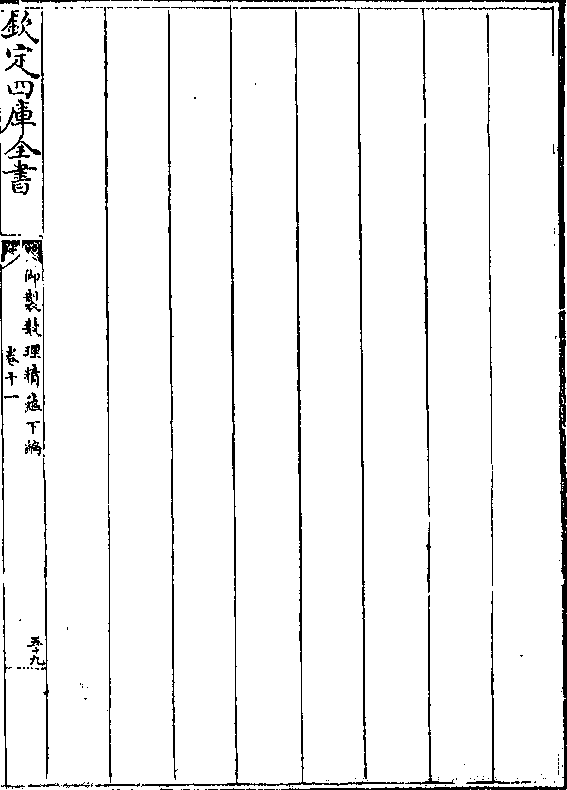 欽定四庫全書
御製數理精蘊下編
卷十一
五十九